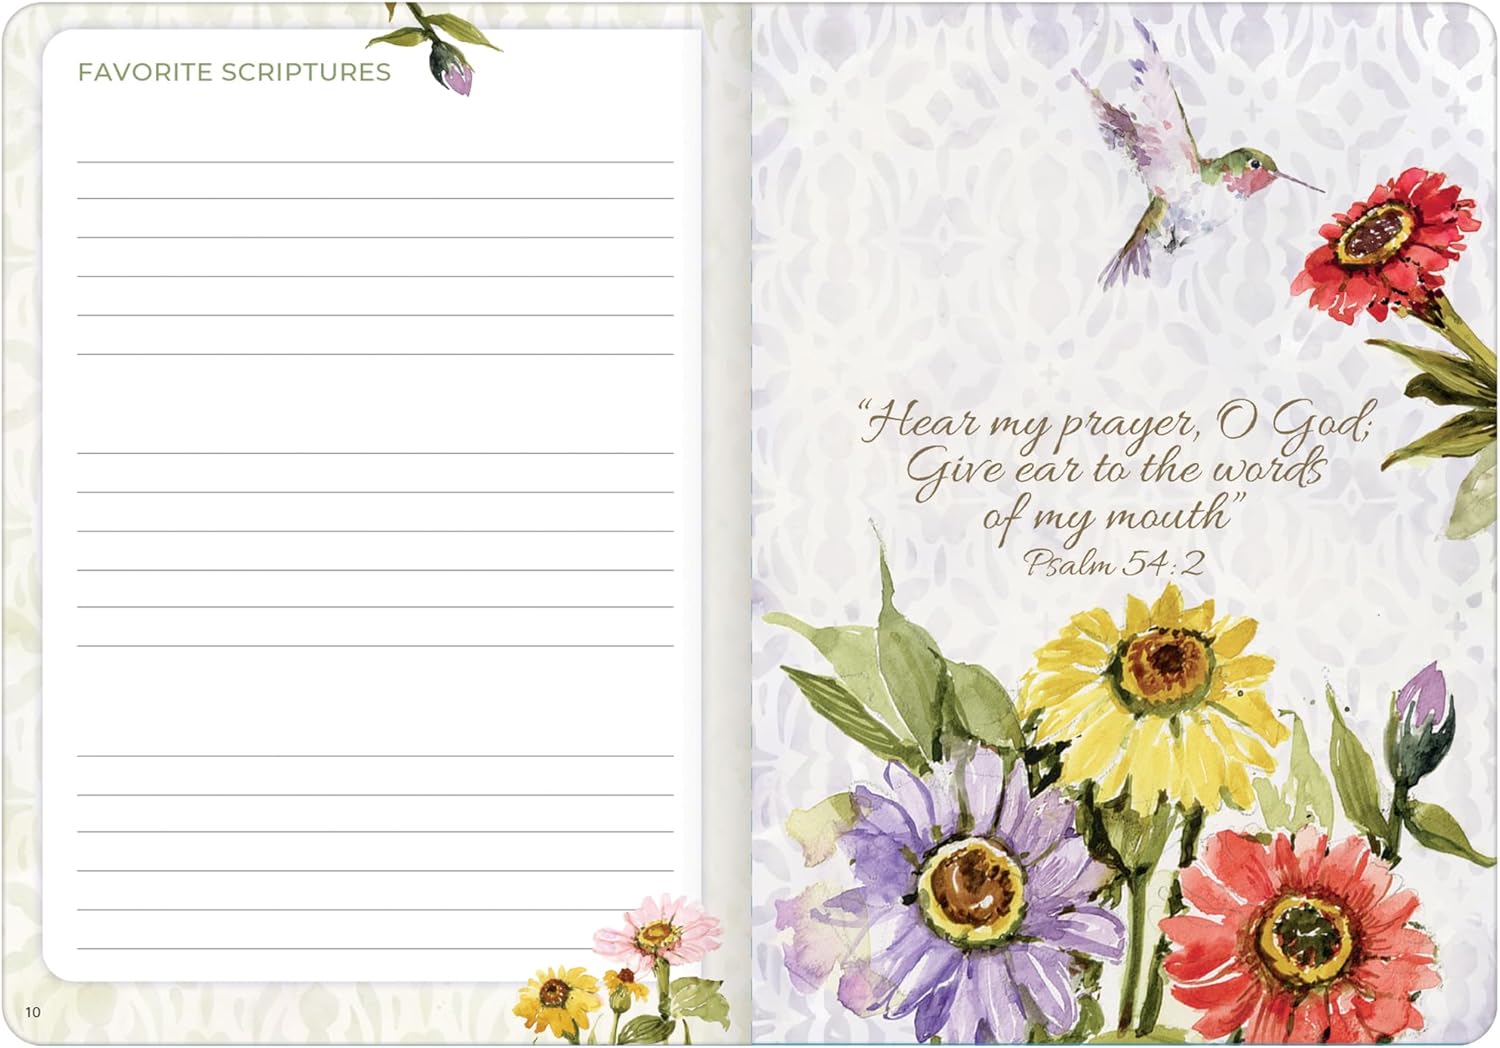 FAVORITE SCRIPTURES
10
“Hear my prayer, O God;
Give ear to the words
of my mouth”
Psalm 54:2